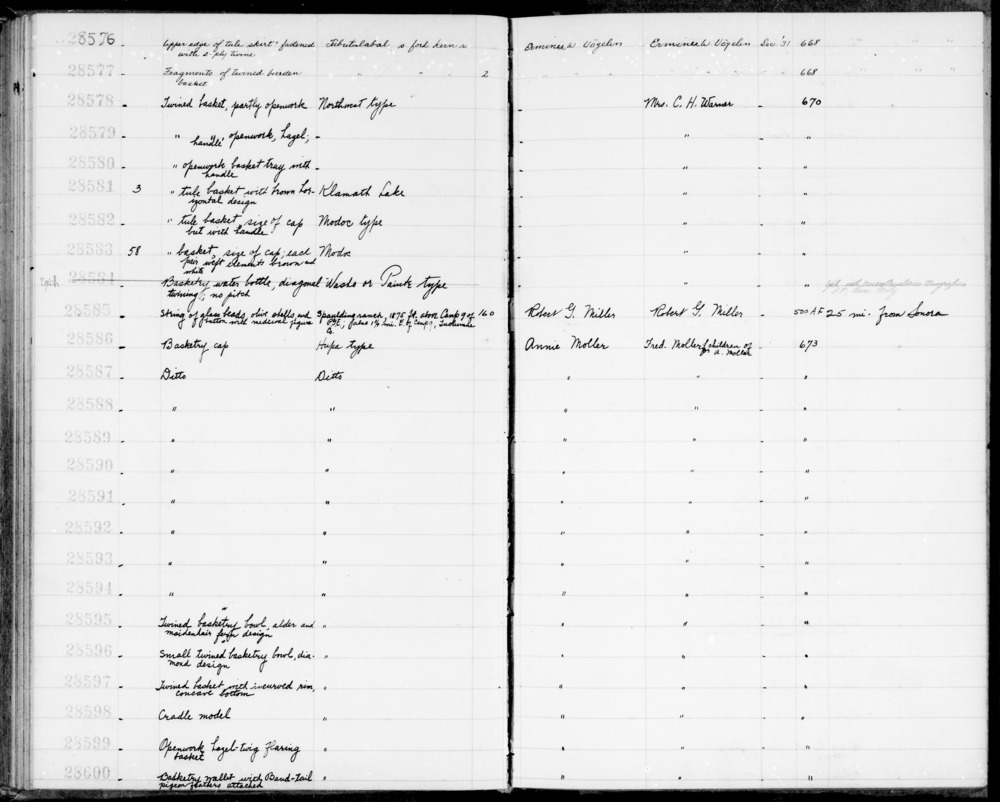 28576 Upper edge of tule skirt fastened s fork kern r Erminie W Vögelin Erminie W Vögelin Dec '31 668
with 2 ply twine
28577 Fragments of twined burden " " 2 " " " " 668
basket
28578 - Twined basket, partly openwork Northwest type - Mrs. C. H. Warner - 670
28579 - " openwork, hazel; - - " - "
handle
28580 - " openwork basket tray with - - " - "
handle
28581 3 " tule basket with brown hor- Klamath Lake - " - "
izontal design
28582 - " tule basket, size of cap Modoc type - " - "
but with handle
28583 58 " basket, size of cap; each Modoc - " - "
weft elements brown and
white
28584 - Basketry water bottle, diagonal Washo or Paiute type - " - "
twining; no pitch
28585 - String of glass beads, olive shells and Spaulding ranch, 1875 ft. above Camp 9 of 160 Robert G. Miller Robert G. Miller - 500 AF 25 mi. from Sonora
button with medieval figure PGE; mi. E. of Camp 9, Tuolumne
Co.
28586 - Basketry cap Hupa type Annie Moller Fred. Moller & children of - 673
for A. Moller
28587 - Ditto Ditto " " - "
28588 - " " " " - "
28589 - " " " " - "
28590 - " " " " - "
28591 - " " " " - "
28592 - " " " " - "
28593 - " " " " - "
28594 - " " " " - "
28595 - Twined basketry bowl, alder and " " " - "
maidenhair fern design
28596 - Small twined basketry bowl, dia- " " " - "
mond design
28597 - Twined basket with incurved rim, " " " - "
concave bottom
28598 - Cradle model " " " - "
28599 - Openwork hazel-twig flaring " " " - "
basket
28600 - Basketry wallet with Band-tail " " " - "
pigeon feathers attached